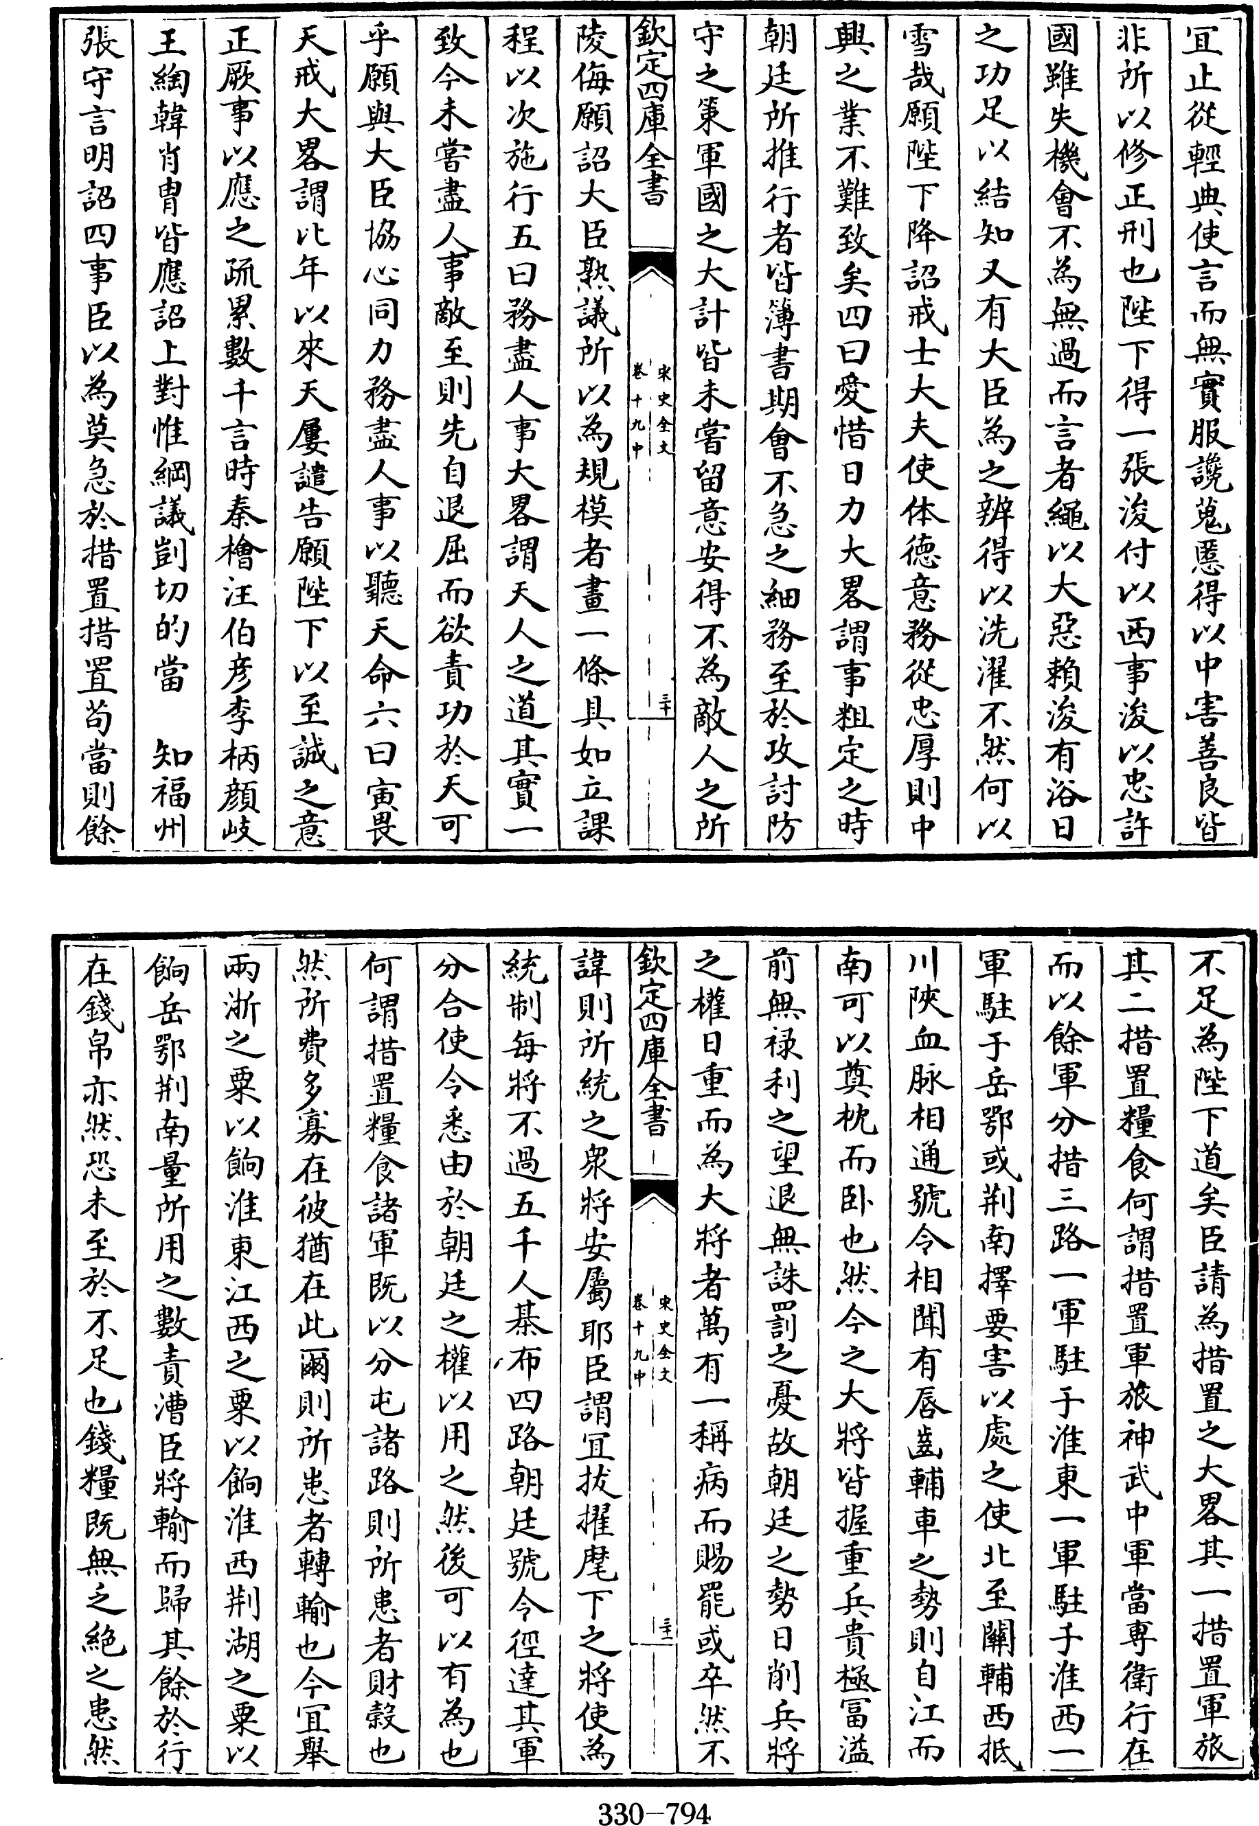 宜止從輕典使言而無實服讒蒐慝得以中害善良皆
非所以修正刑也陛下得一張浚付以西事浚以忠許
國雖失機會不為無過而言者繩以大惡賴浚有浴日
之功足以結知又有大臣為之辨得以洗濯不然何以
雪哉願陛下降詔戒士大夫使体德意務從忠厚則中
興之業不難致矣四曰愛惜日力大畧謂事粗定之時
朝廷所推行者皆簿書期會不急之細務至於攻討防
守之策軍國之大計皆未嘗留意安得不為敵人之所
欽定四庫全書
宋史全文
卷十九中
三十
陵侮願詔大臣熟議所以為規模者畫一條具如立課
程以次施行五曰務盡人事大畧謂天人之道其實一
致今未嘗盡人事敵至則先自退屈而欲責功於天可
乎願與大臣協心同力務盡人事以聽天命六曰寅畏
天戒大畧謂比年以來天屢譴告願陛下以至誠之意
正厥事以應之疏累數千言時秦檜汪伯彦李柄顔岐
王綯韓肖胄皆應詔上對惟綱議剴切的當 知福州
張守言明詔四事臣以為莫急於措置措置苟當則餘
不足為陛下道矣臣請為措置之大畧其一措置軍旅
其二措置糧食何謂措置軍旅神武中軍當專衛行在
而以餘軍分措三路一軍駐于淮東一軍駐于淮西一
軍駐于岳鄂或荆南擇要害以處之使北至關輔西抵
川陝血脉相通號令相聞有唇齒輔車之勢則自江而
南可以奠枕而卧也然今之大將皆握重兵貴極富溢
前無禄利之望退無誅罰之憂故朝廷之勢日削兵將
之權日重而為大將者萬有一稱病而賜罷或卒然不
欽定四庫全書
宋史全文
卷十九中
三十一
諱則所統之衆將安屬耶臣謂宜拔擢麾下之將使為
統制每將不過五千人棊布四路朝廷號令徑達其軍
分合使令悉由於朝廷之權以用之然後可以有為也
何謂措置糧食諸軍既以分屯諸路則所患者財穀也
然所費多寡在彼猶在此爾則所患者轉輸也今宜舉
兩浙之粟以餉淮東江西之粟以餉淮西荆湖之粟以
餉岳鄂荆南量所用之數責漕臣將輸而歸其餘於行
在錢帛亦然恐未至於不足也錢糧既無乏絶之患然
330-794